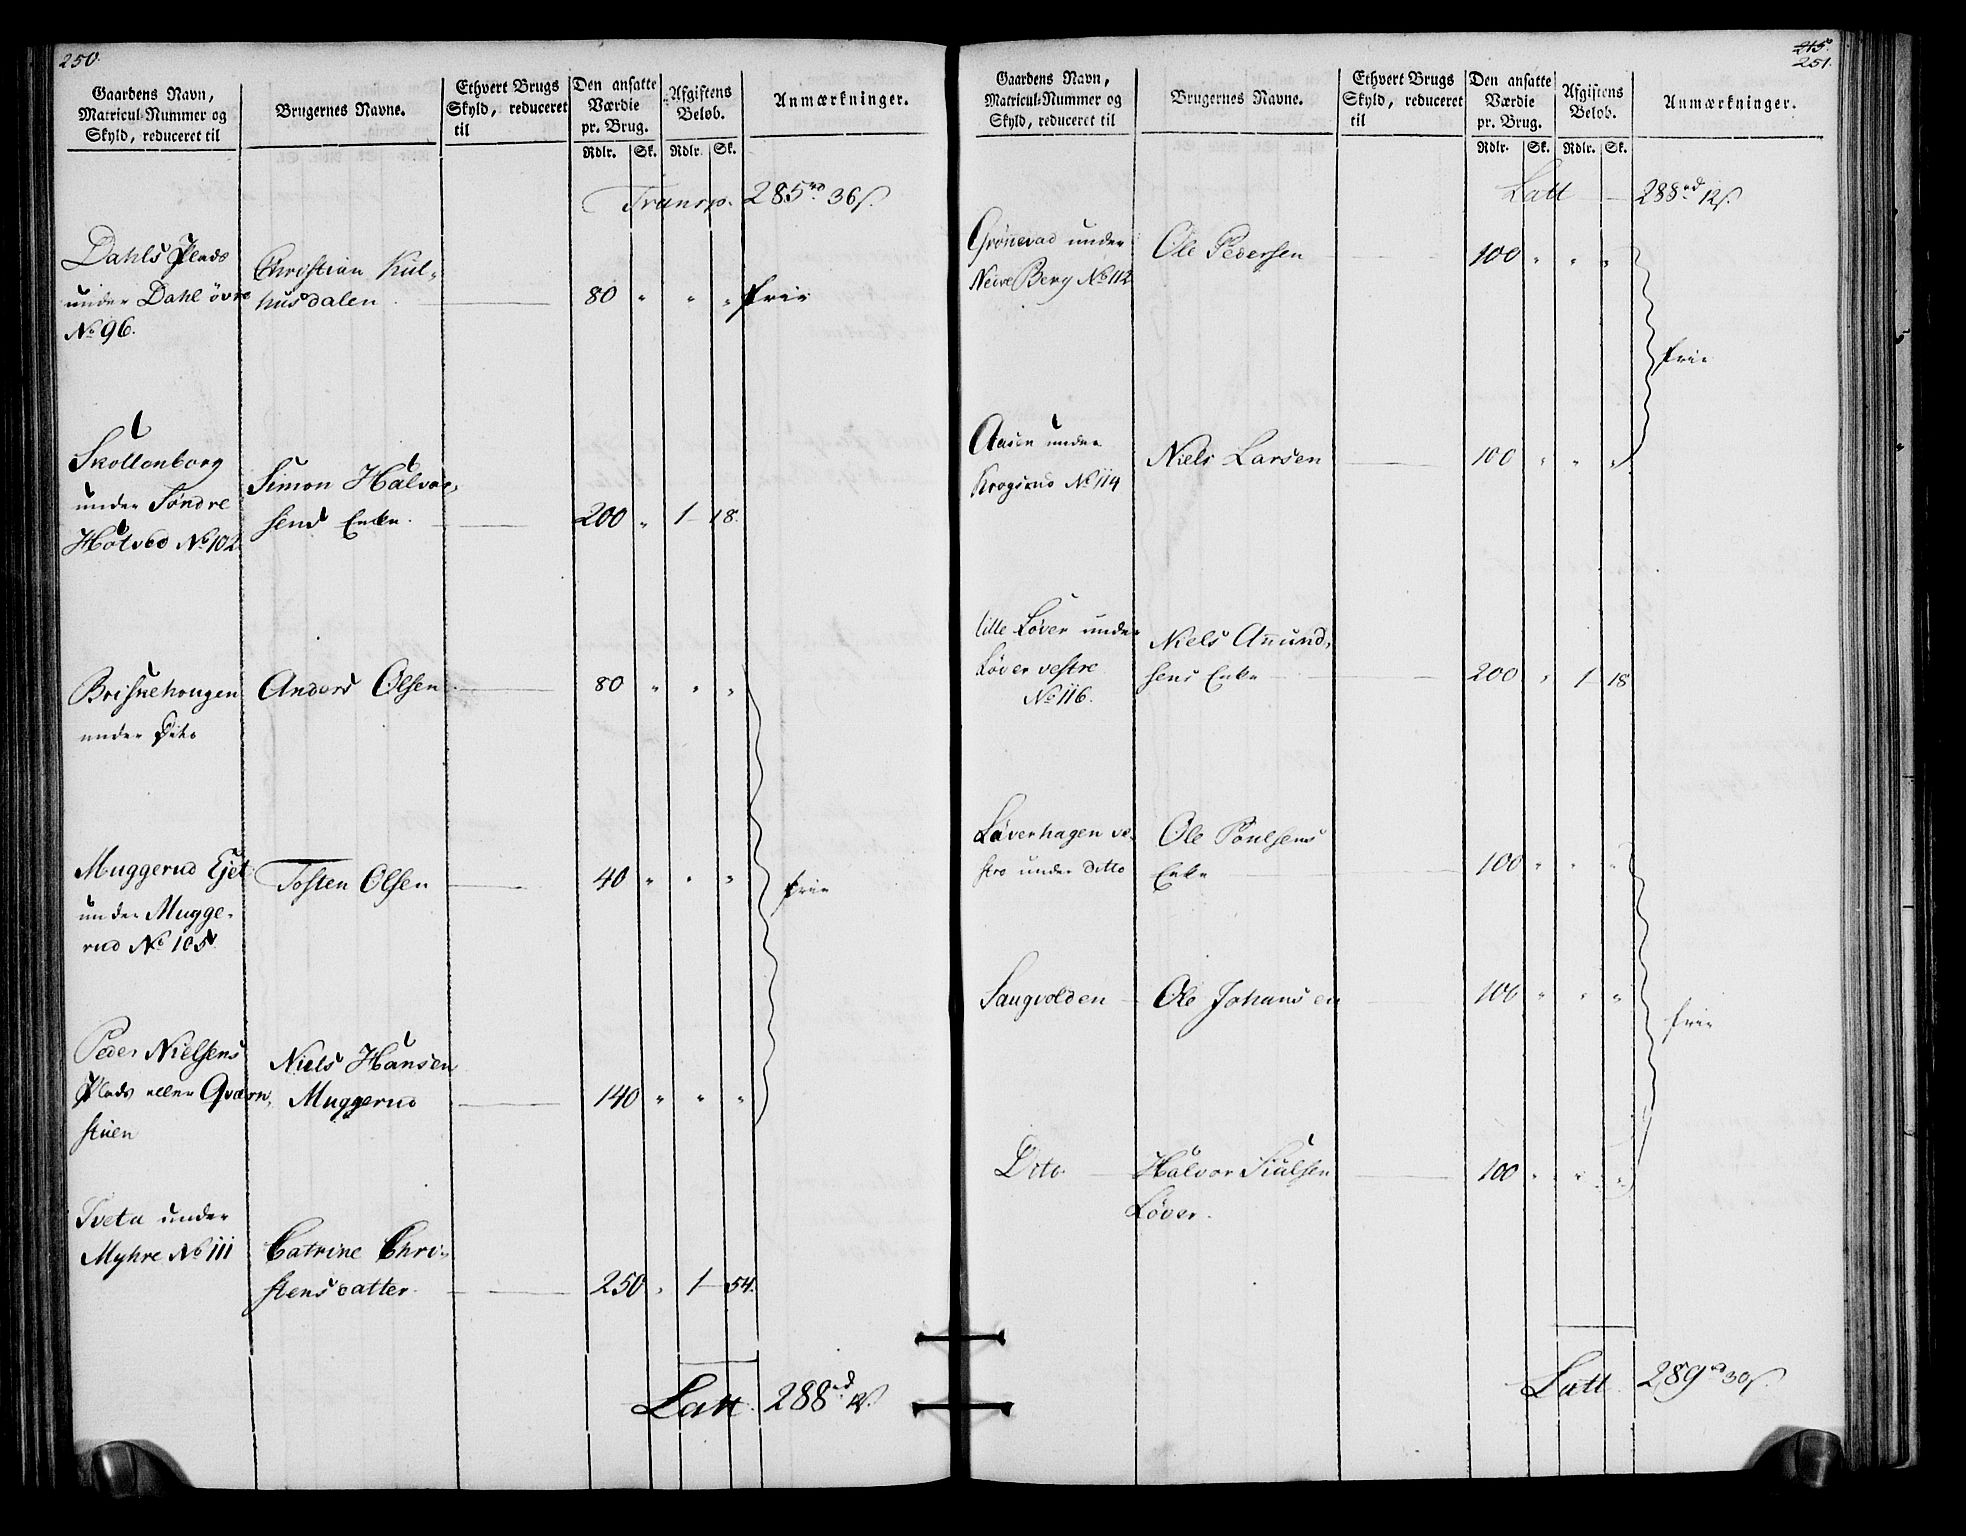 250.
Gaardens Navn, Matricul-Nummer og Skyld, reduceret til
Brugernes Navne.
Ethvert Brugs Skyld, reduceret til
Den ansatte Værdie pr. Brug.
Afgiftens Beløb.
Anmærkninger.
Rdlr. Sk. Rdlr. Sk.
Transp. 285rd 36s.
Dahls Plads
under Dahl øvre
No 96.
Christian Kul-
husdalen. 80 " " " frie
Skollenborg
under Søndre
Hotved No 102.
Simon Halvor-
sens Enke. 200 " 1 18.
Briskehougen
under Dito
Anders Olsen 80 " " "
Muggerud Ejet
under Mugge-
rud No 105.
Tosten Olsen 40 " " " frie
Peder Nielsens
Plads eller Qværn-
stuen
Niels Hansen
Muggerud 140 " " "
Tveta under
Myhre No 111
Catrine Chri-
stensdatter. 250 " 1 54.
Latt. 288rd 12s.
215.
251.
Gaardens Navn, Matricul-Nummer og Skyld, reduceret til
Brugernes Navne.
Ethvert Brugs Skyld, reduceret til
Den ansatte Værdie pr. Brug.
Afgiftens Beløb.
Anmærkninger.
Rdlr. Sk. Rdlr. Sk.
Latt 288rd 12s.
Grønnevad under
Nedre Berg No 112
Ole Pedersen 100 " " "
frie
Aasen under
Krogsrud No 114
Niels Larsen 100 " " "
lille Løver under
Løver vestre
No 116.
Niels Amund-
sens Enke 200 " 1 18
Løverhagen ve-
stre under ditto
Ole Poulsens
Enke 100 " " "
Saugvolden Ole Johansen 100 " " "
frie
Dito Halvor Siulsen
Løver. 100 " " "
Latt. 289rd 30s.